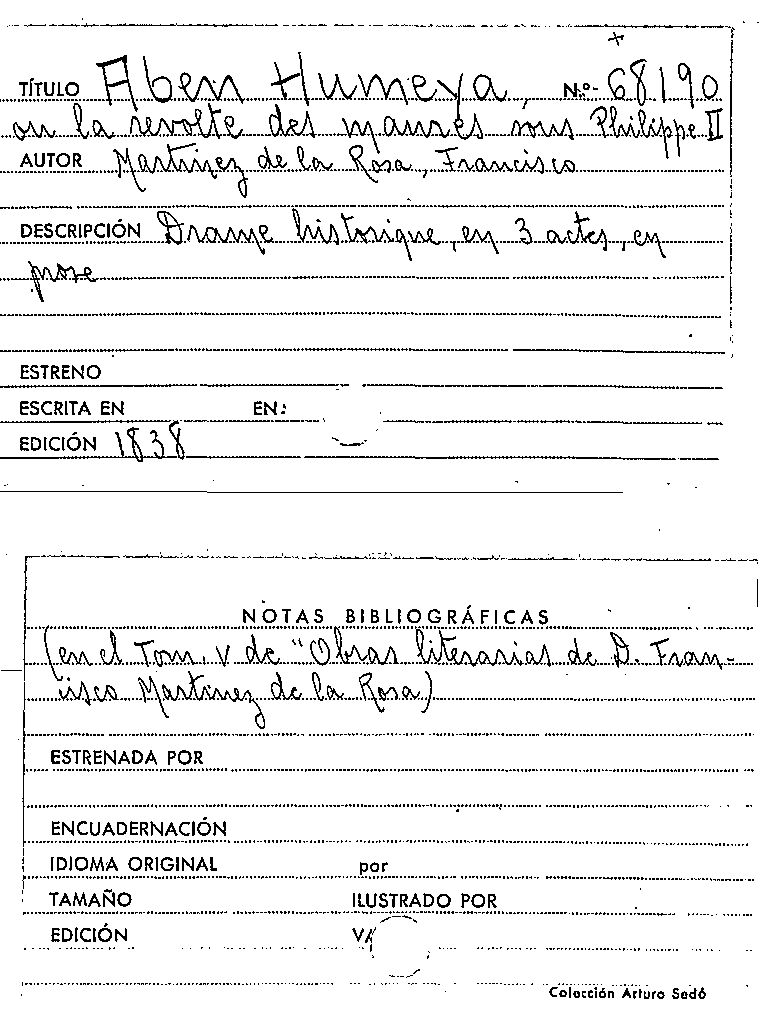 +
TÍTULO Aben Humeya, N.º- 68190
ou la revolte des maures sous Philippe II
AUTOR Martinez de la Rosa, Francisco
DESCRIPCIÓN Drame historique, en 3 actes, en
prose
ESTRENO
ESCRITA EN EN:
EDICIÓN 1838
NOTAS BIBLIOGRÁFICAS
(en el Tom. V de "Obras literarias de D. Fran-
cisco Martinez de la Rosa)
ESTRENADA POR
ENCUADERNACIÓN
IDIOMA ORIGINAL por
TAMAÑO ILUSTRADO POR
EDICIÓN
Colección Arturo Sedó